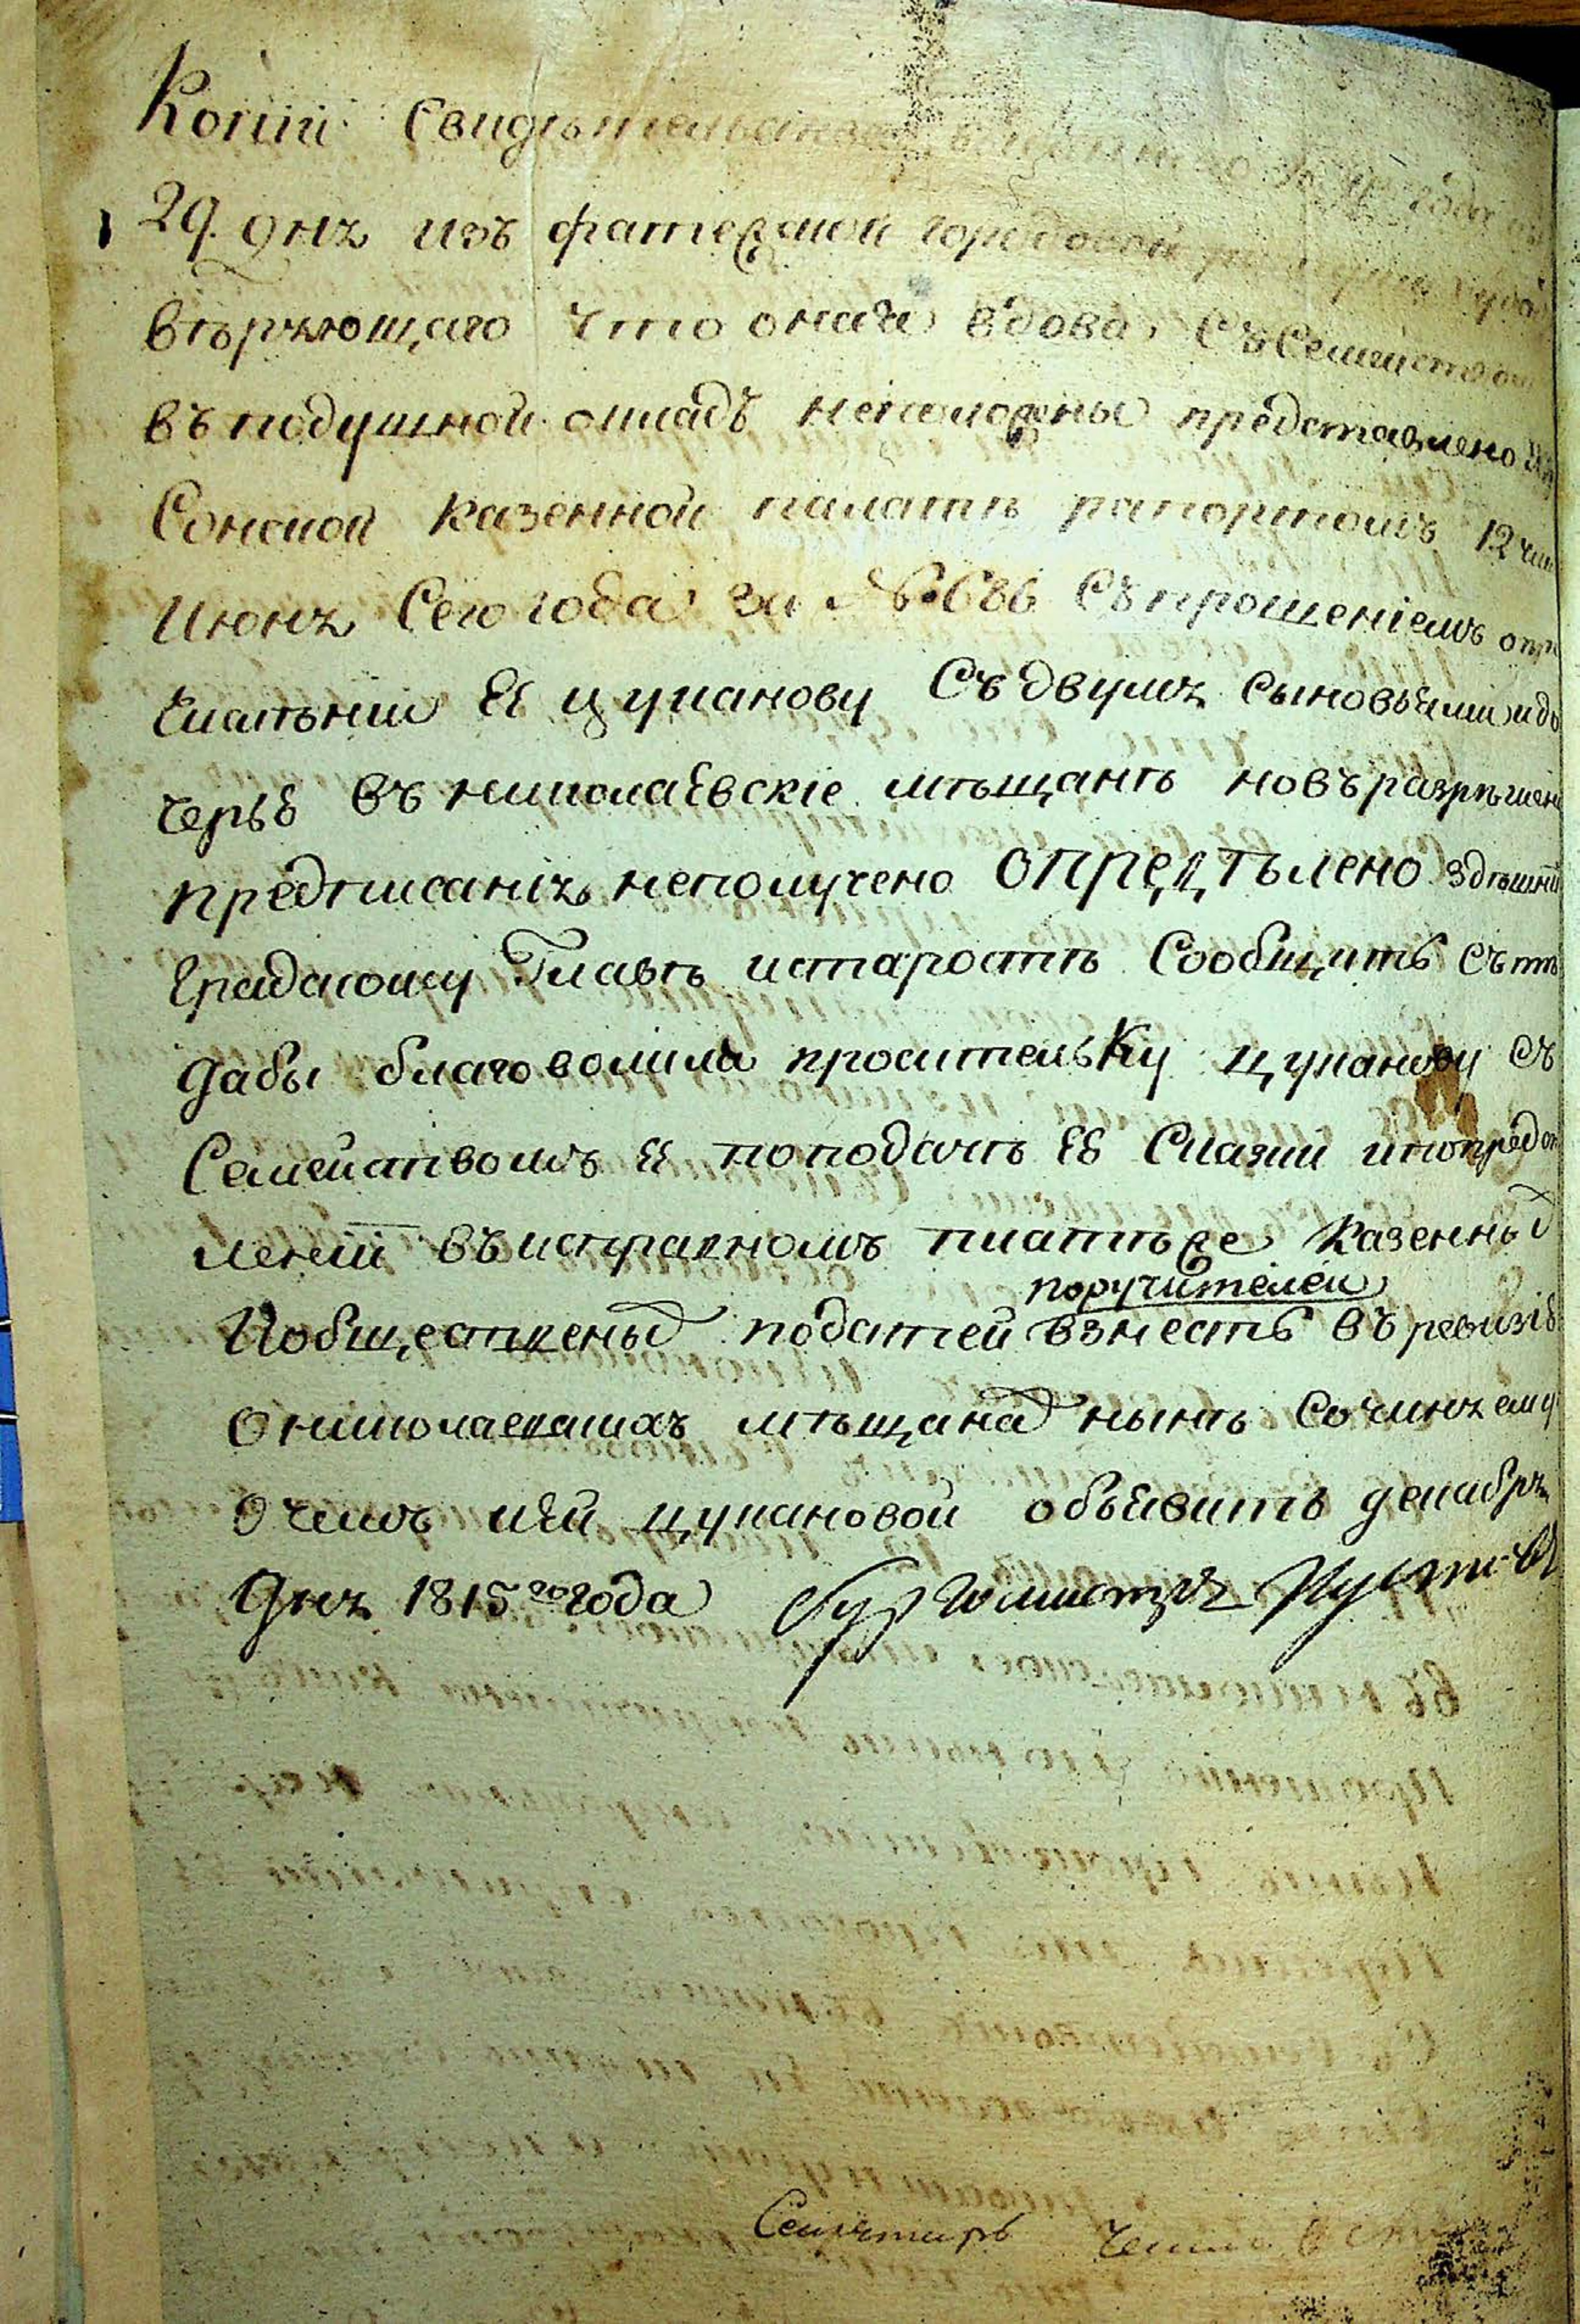 Копіи Свидѣтельства года
29. дня изъ фатежской городовой
вѣрующаго что оная вдова, съ Семейством
въ подушной окладъ неположены представлено
Сонской казенной палатѣ рапортомъ 12 чи
Июня Сего года за № 686 Съ прошеніемъ
ея цуканову Съ двумя Сыновьями идо
черью въ николаевскіе мѣщанѣ новъ разрѣшен
предписанія неполучено опредѣлено здѣшни
Градскому Главѣ истаростѣ Сообщить съ тѣ
дабы благоволила просительку цуканову съ
Семействомъ ея поподачѣ ею Сказки ипопредст
леніи въ исправномъ платѣже казенных
поручителей
Иобщественых податей взнесть въ ревизію
Ониколаевскихъ мѣщанах нынѣ Сочиняему
Очемъ ией цукановой объявить декабря
Дня 1815 го года Бургомистръ
Секретарь